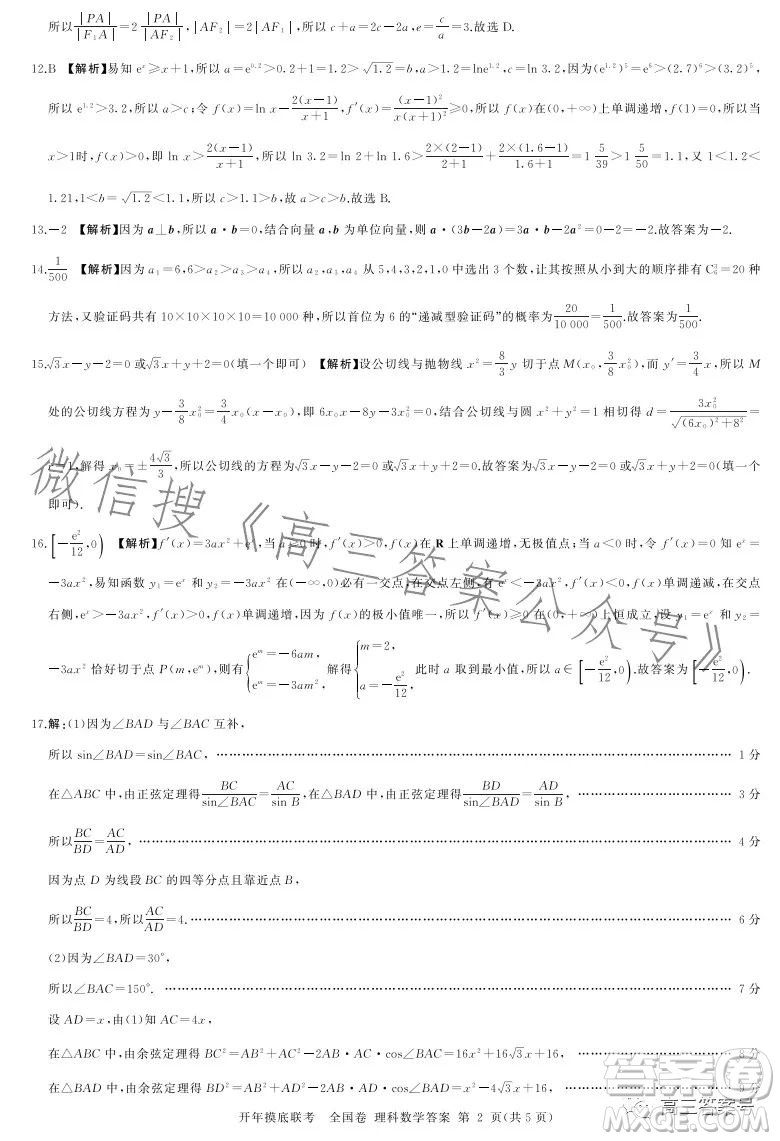 所以|PA|/|F₁A|=2|PA|/|AF₂|,|AF₂|=2|AF₁|,所以 c+a=2c-2a,e=c/a=3.故选 D.
12.B 【解析】易知 eˣ≥x+1,所以 a=e^0.2>0.2+1=1.2>√1.2=b,a>1.2=lne^1.2,c=ln 3.2,因为(e^1.2)⁵=e⁶>(2.7)⁶>(3.2)⁵,
所以 e^1.2>3.2,所以 a>c;令 f(x)=ln x-2(x-1)/(x+1),f′(x)=(x-1)²/(x(x+1)²)≥0,所以 f(x)在(0,+∞)上单调递增,f(1)=0,所以当
x>1时,f(x)>0,即 ln x>2(x-1)/(x+1),所以 ln 3.2=ln 2+ln 1.6>2×(2-1)/(2+1)+2×(1.6-1)/(1.6+1)=1 5/39>1 5/50=1.1,又 1<1.2<
1.21,1<b=√1.2<1.1,所以 c>1.1>b,故 a>c>b.故选 B.
13.-2 【解析】因为 a⊥b,所以 a·b=0,结合向量 a,b 为单位向量,则 a·(3b-2a)=3a·b-2a²=0-2=-2.故答案为-2.
14.1/500 【解析】因为 a₁=6,6>a₂>a₃>a₄,所以 a₂,a₃,a₄ 从 5,4,3,2,1,0 中选出 3 个数,让其按照从小到大的顺序排有 C₆³=20 种
方法,又验证码共有 10×10×10×10=10 000 种,所以首位为 6 的“递减型验证码”的概率为20/10 000=1/500.故答案为1/500.
15.√3x-y-2=0 或√3x+y+2=0(填一个即可) 【解析】设公切线与抛物线 x²=8/3y 切于点 M(x₀,3/8x₀²),而 y′=3/4x,所以 M
处的公切线方程为 y-3/8x₀²=3/4x₀(x-x₀),即 6x₀x-8y-3x₀²=0,结合公切线与圆 x²+y²=1 相切得 d=3x₀²/√((6x₀)²+8²)
=1,解得 x₀=±4√3/3,所以公切线的方程为√3x-y-2=0 或√3x+y+2=0.故答案为√3x-y-2=0 或√3x+y+2=0(填一个
即可).
16.[-e²/12,0) 【解析】f′(x)=3ax²+eˣ,当 a≥0时,f′(x)>0,f(x)在 R 上单调递增,无极值点;当 a<0 时,令 f′(x)=0 知 eˣ=
-3ax²,易知函数 y₁=eˣ 和 y₂=-3ax² 在(-∞,0)必有一交点,在交点左侧,有 eˣ<-3ax²,f′(x)<0,f(x)单调递减,在交点
右侧,eˣ>-3ax²,f′(x)>0,f(x)单调递增,因为 f(x)的极小值唯一,所以 f′(x)≥0 在(0,+∞)上恒成立,设 y₁=eˣ 和 y₂=
-3ax² 恰好切于点 P(m,eᵐ),则有{eᵐ=-6am, eᵐ=-3am²,解得{m=2, a=-e²/12,此时 a 取到最小值,所以 a∈[-e²/12,0).故答案为[-e²/12,0).
17.解:(1)因为∠BAD 与∠BAC 互补,
所以 sin∠BAD=sin∠BAC,…… 1 分
在△ABC 中,由正弦定理得BC/sin∠BAC=AC/sin B,在△BAD 中,由正弦定理得BD/sin∠BAD=AD/sin B,…… 3 分
所以BC/BD=AC/AD,…… 4 分
因为点 D 为线段 BC 的四等分点且靠近点 B,
所以BC/BD=4,所以AC/AD=4.…… 6 分
(2)因为∠BAD=30°,
所以∠BAC=150°.…… 7 分
设 AD=x,由(1)知 AC=4x,
在△ABC 中,由余弦定理得 BC²=AB²+AC²-2AB·AC·cos∠BAC=16x²+16√3x+16,…… 8 分
在△BAD 中,由余弦定理得 BD²=AB²+AD²-2AB·AD·cos∠BAD=x²-4√3x+16,…… 9 分
开年摸底联考 全国卷 理科数学答案 第 2 页(共 5 页)
微信搜《高三答案公众号》
高三答案号